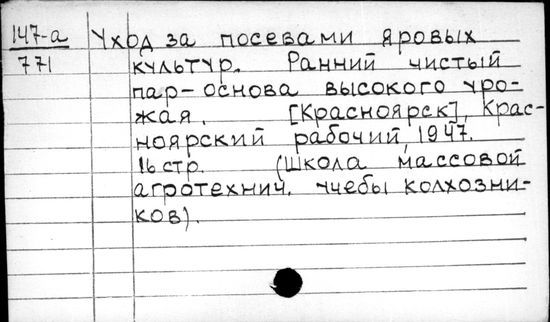 147-а Уход за посевами яровых
771 культур. Ранний чистый
пар-основа высокого уро-
жая. [Красноярск], Крас-
ноярский рабочий, 1947.
16 стр. (Школа массовой
агротехнич. учебы колхозни-
ков).